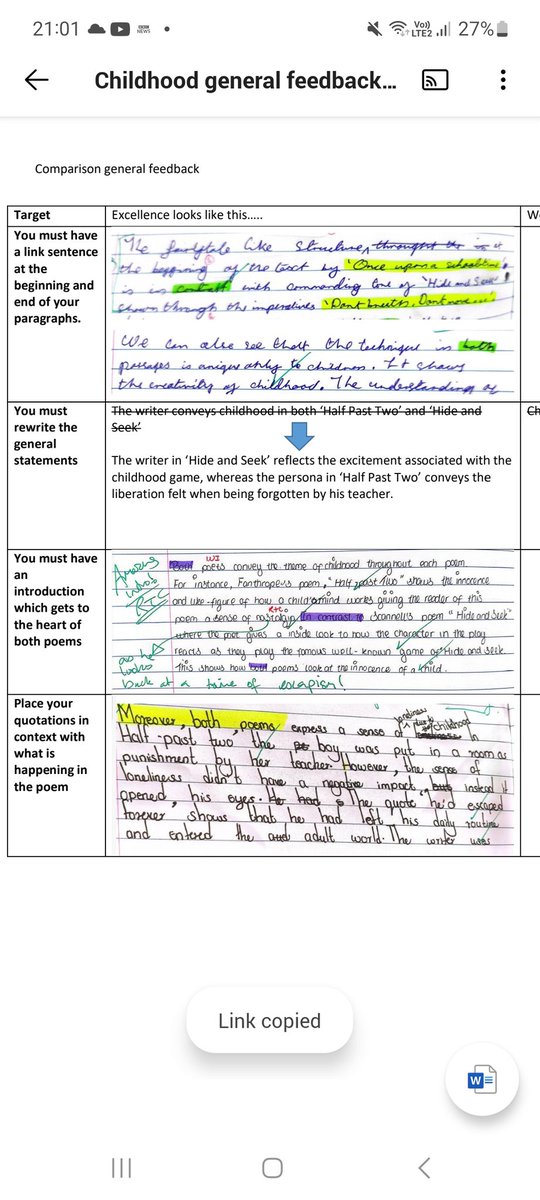 21:01 BBC NEWS Vo)) LTE2 27%
Childhood general feedback...
Comparison general feedback
Target
Excellence looks like this.....
W
You must have
a link sentence
at the
beginning and
end of your
paragraphs.
The fairytale like structure, throught the
the beginning of the text by 'Once upon a schooltime'
is in contrast with commanding tone of "Hide and Seek"
shown through the imperatives 'Dont breath, Dont move'
We can also see that the technique in both
passages is unique only to children. It shows
the creativity of childhood. The understanding of
You must
rewrite the
general
statements
The writer conveys childhood in both 'Half Past Two' and 'Hide and
Seek'
Ch
The writer in 'Hide and Seek' reflects the excitement associated with the
childhood game, whereas the persona in 'Half Past Two' conveys the
liberation felt when being forgotten by his teacher.
You must have
an
introduction
which gets to
the heart of
both poems
WI
Both poets convey the theme of childhood throughout each poem
For instance, Fanthropeus poem, "Half past Two" shows the innocence
and like-figure of how a child's mind works giving the reader of this
poem a sense of nostalgia. In contrast Scannell's poem "Hide and Seek"
where the poet gives a inside look to how the character in the play
reacts as they play the famous well-known game of Hide and Seek.
This shows how both poems look at the innocence of a child.
as he
looks
back at a time of escapism!
Place your
quotations in
context with
what is
happening in
the poem
Moreover, both poems express a sense of loneliness childhood In
Half-past two, the boy was put in a room as
punishment by her teacher. However, the sense of
loneliness didn't have a negative impact, but instead it
opened his eyes. He had The quote, he'd escaped
forever shows that he had left his daily routine
and entered the adult world. The writer uses
Link copied
W